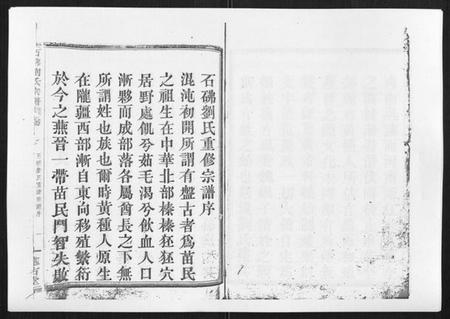 石硉劉氏重修宗譜序
混沌初開所謂有盤古者爲苗民
之祖生在中華北部榛榛狉狉穴
居野處飢兮茹毛渴兮飲血人口
漸夥而成部落各屬酋長之下無
所謂姓也族也爾時黃種人原生
在隴疆西部漸自東向移殖繁衍
於今之燕晉一帶苗民鬥智失敗